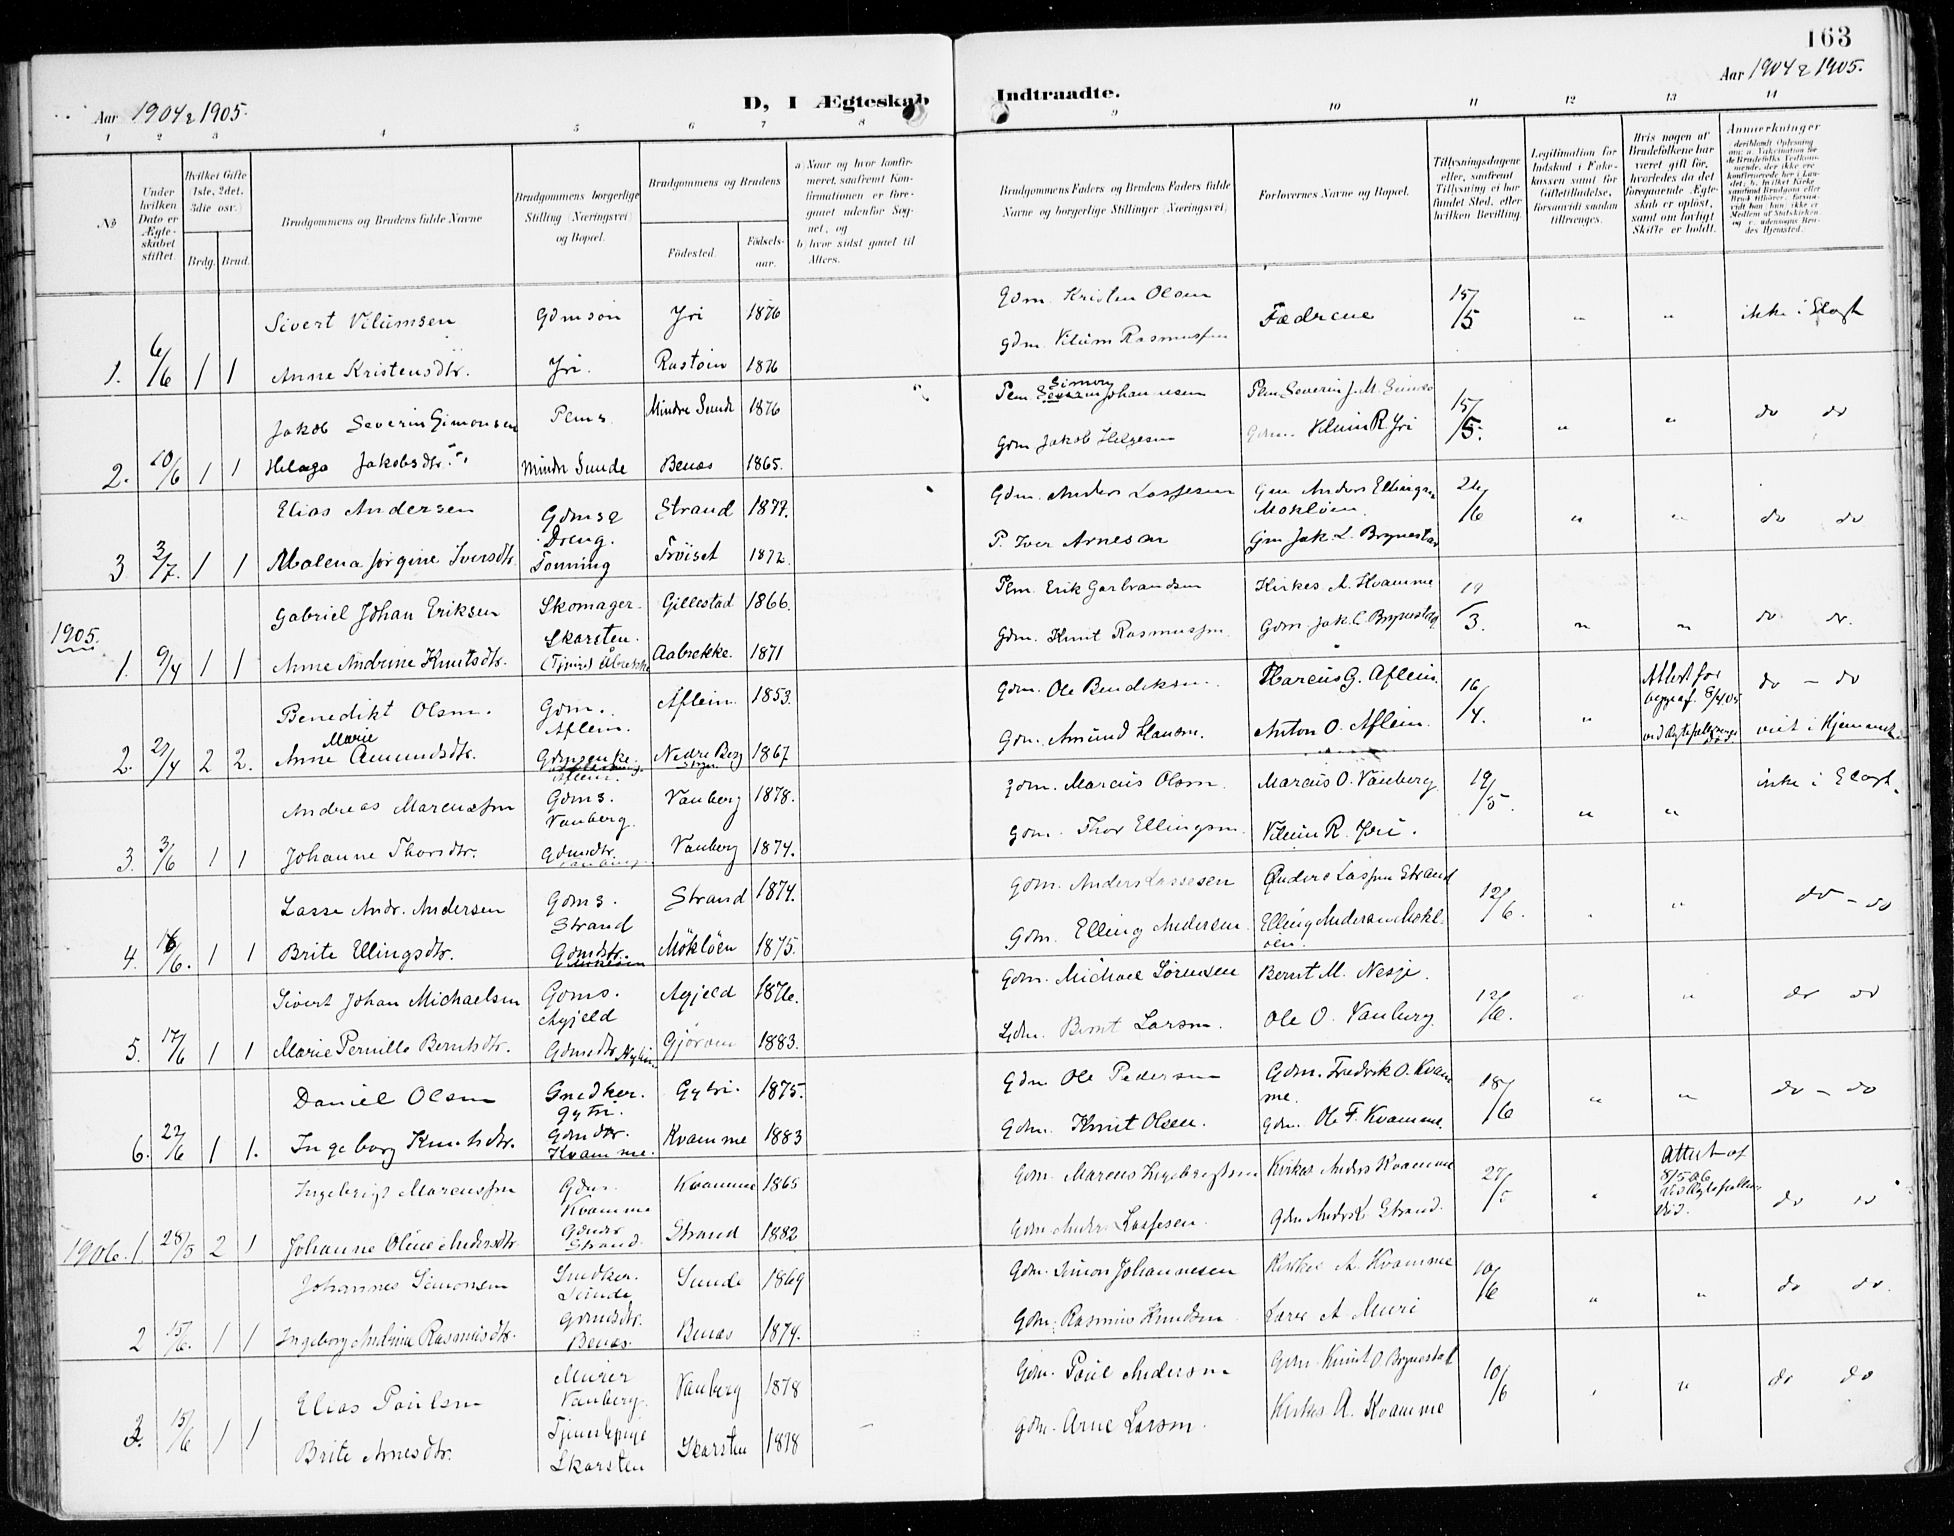 163
Aar 1904 & 1905.
Aar 1904 & 1905.
D, I Ægteskab Indtraadte.
1 2 3 4 5 6 7 8 9 10 11 12 13 14
No
Under hvilken Dato er Ægteskabet stiftet.
Hvilket Gifte (1ste, 2det, 3die osv.)
Brdg. Brud.
Brudgommens og Brudens fulde Navne
Brudgommens borgerlige Stilling (Næringsvei) og Bopæl.
Brudgommens og Brudens
Fødested. Fødselsaar.
a) Naar og hvor konfirmeret, saafremt Konfirmationen er foregaaet udenfor Sognet, og
b) hvor sidst gaaet til Alters.
Brudgommens Faders og Brudens Faders fulde Navne og borgerlige Stillinger (Næringsvei)
Forlovernes Navne og Bopæl.
Tillysningsdagene eller, saafremt Tillysning ei har fundet Sted, efter hvilken Bevilling.
Legitimation for Indskud i Enkekassen samt for Giftetilladelse, forsaavidt saadan tiltrænges.
Hvis nogen af Brudefolkene har været gift før, hvorledes da det foregaaende Ægteskab er opløst, samt om lovligt Skifte er holdt.
Anmerkninger
Sivert Vilumsen Gdmsøn Yri 1876 Gdm. Kristen Olsen Fædrene 15/5 " " ikke i Slægt
1. 6/6 1 1 Anne Kristensdtr. Yri. Rustøin 1876 Gdm. Vilum Rasmussen
Jakob Severin Simonsen Plms Mindre Sunde 1876 Plm Simon Johannesen Plm Severin J. M. Sunde 15/5. " " do do
2. 10/6 1 1 Helaga Jakobsdtr. Mindre Sunde Benæs 1865. Gdm Jakob Helgesen Gdm. Vilum R Yri
Elias Andersen Gdms & Dreng. Strand 1877. Gdm. Anders Lassesen Gm Anders Ellingsen Mökløen. 24/6 " " do do
3 3/7. 1 1 Malena Jørgine Iversdtr. Tonning Frøiset 1872. P. Iver Arnesen Gm Jak. L. Brynestad
1905.
Gabriel Johan Eriksen Skomager. Gillestad 1866. Plm. Erik Garbrandsen Kirkes. A. Kvamme 19/3. " " do do.
1. 9/4 1 1 Anne Andrine Knutsdtr. Skarsten. Aabrekke. 1871 Gdm. Knut Rasmussen Gdm Jak. L. Brynestad
Benedikt Olsen. Gdm. Aflein. Aflein. 1853. Gdm. Ole Bendiksen. Marcus G. Aflein. 16/4. " Attest for do - do
2. 27/4 2 2. Anne Marie Amundsdtr. Gdmsenke. Aflein. Nedre Berg 1867 Gdm. Amund Hansen. Anton O. Aflein. viet i Hjemmet.
Andreas Marcussen Gdms. Vanberg. Vanberg 1878. Gdm. Marcus Olsen. Marcus O. Vanberg 19/5. " " ikke i Slægt.
3. 3/6 1 1 Johanne Thorsdtr. Gdmsdtr. Vanberg 1874. Gdm. Thor Ellingsen. Vilum R. Yri.
Lasse Andr. Andersen Gdms. Strand Strand 1874. Gdm. Anders Lassesen Anders Lassen Strand 12/6. " do - do
4. 16/6. 1 1 Brite Ellingsdtr. Gdmdtr. Mökløen 1875. Gdm. Elling Andersen Elling Andersen Mökløen.
Sivert Johan Michaelsen Gdms. Agjeld Agjeld 1876. Gdm. Michael Sørensen Bernt M. Nesje. 12/6. " " do do
5. 17/6 1 1 Marie Pernille Berntsdtr. Gdmsdtr Gjørven 1883. Gdm. Bernt Larsen. Ole O. Vanberg.
Daniel Olsen Snedker. Gytri. Gytri. 1875. Gdm Ole Pedersen Gdm. Fredrik O. Kvamme. 18/6 " " do - do
6. 22/6 1 1. Ingeborg Knutsdtr. Gdmdtr. Kvamme. Kvamme 1883 Gdm. Knut Olsen. Gdm. Ole F. Kvamme.
Ingebrigt Marcussen Gdm. Kvamme Kvamme 1865 Gdm. Marcus Ingebrigtsen Kirkes Anders Kvamme 27/5 " Attest af 8/5 06 do do
1906. 1. 28/5 2 1 Johanne Oline Andersdtr Gdmdtr Strand. Strand 1882 Gdm Anders Lassesen. Gdm Anders L. Strand.
Johannes Simonsen Snedker. Sunde Sunde 1869 Gdm. Simon Johannesen Kirkes A. Kvamme 10/6 " " do do.
2 15/6. 1 1 Ingeborg Andrina Rasmusdtr. Gdmsdtr. Benæs Benæs 1874. Gdm. Rasmus Knudsen Lærer A. Muri
Elias Paulsen Murer Vanberg. Vanberg 1878 Gdm. Paul Andersen Gdm. Knut O. Brynestad 10/6 " " do do
3. 15/6 1 1 Brite Arnesdtr. Tjenestepige Skarsten Skarsten 1878 Gdm. Arne Larsen. Kirkes A. Kvamme